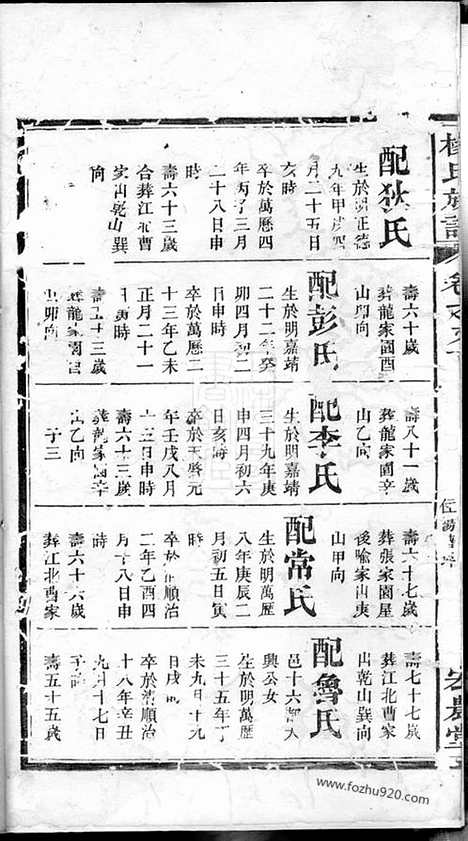 楊氏族譜
宏農堂
配狄氏
生於明正德
九年甲戌四
月二十五日
亥時
卒於萬歷四
年丙子三月
二十八日申
時
壽六十三歲
合葬江北曹
家山乾山巽
向
壽六十歲
葬龍家園酉
山卯向
配彭氏
生於明嘉靖
二十二年癸
卯四月初二
日申時
卒於萬歷二
十三年乙未
正月二十一
日 時
壽五十三歲
葬龍家園酉
山卯向
壽八十一歲
葬龍家園辛
山乙向
配李氏
生於明嘉靖
三十九年庚
申四月初六
日亥時
卒於天啓元
年壬戌八月
十三日申時
壽六十三歲
葬龍家園辛
山乙向
子三
壽六十七歲
葬張家園屋
後喻家山庚
山甲向
配常氏
生於明萬歷
八年庚辰二
月初五日寅
時
卒於清順治
二年乙酉四
月十八日申
時
壽六十六歲
葬江北曹家
壽七十七歲
葬江北曹家
山乾山巽向
配魯氏
邑十六都大
興公女
生於明萬歷
三十五年丁
未九月十九
日戌時
卒於清順治
十八年辛丑
九月十七日
子時
壽五十五歲
www.fozhu920.com